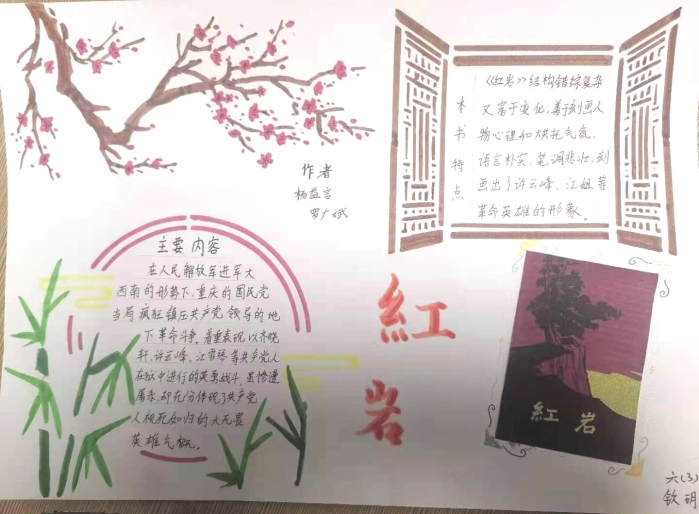 作者
杨益言
罗广斌
本书特点
《红岩》结构错综复杂
又富于变化,善于刻画人
物心理和烘托气氛,
语言朴实,笔调悲壮,刻
画出了许云峰、江姐等
革命英雄的形象。
主要内容
在人民解放军进军大
西南的形势下,重庆的国民党
当局疯狂镇压共产党领导的地
下革命斗争。着重表现以齐晓
轩、许云峰、江雪琴等共产党人
在狱中进行的英勇战斗,虽惨遭
屠杀,却充分体现了共产党
人视死如归的大无畏
英雄气概。
紅
岩
紅岩
六(3)
钦玥